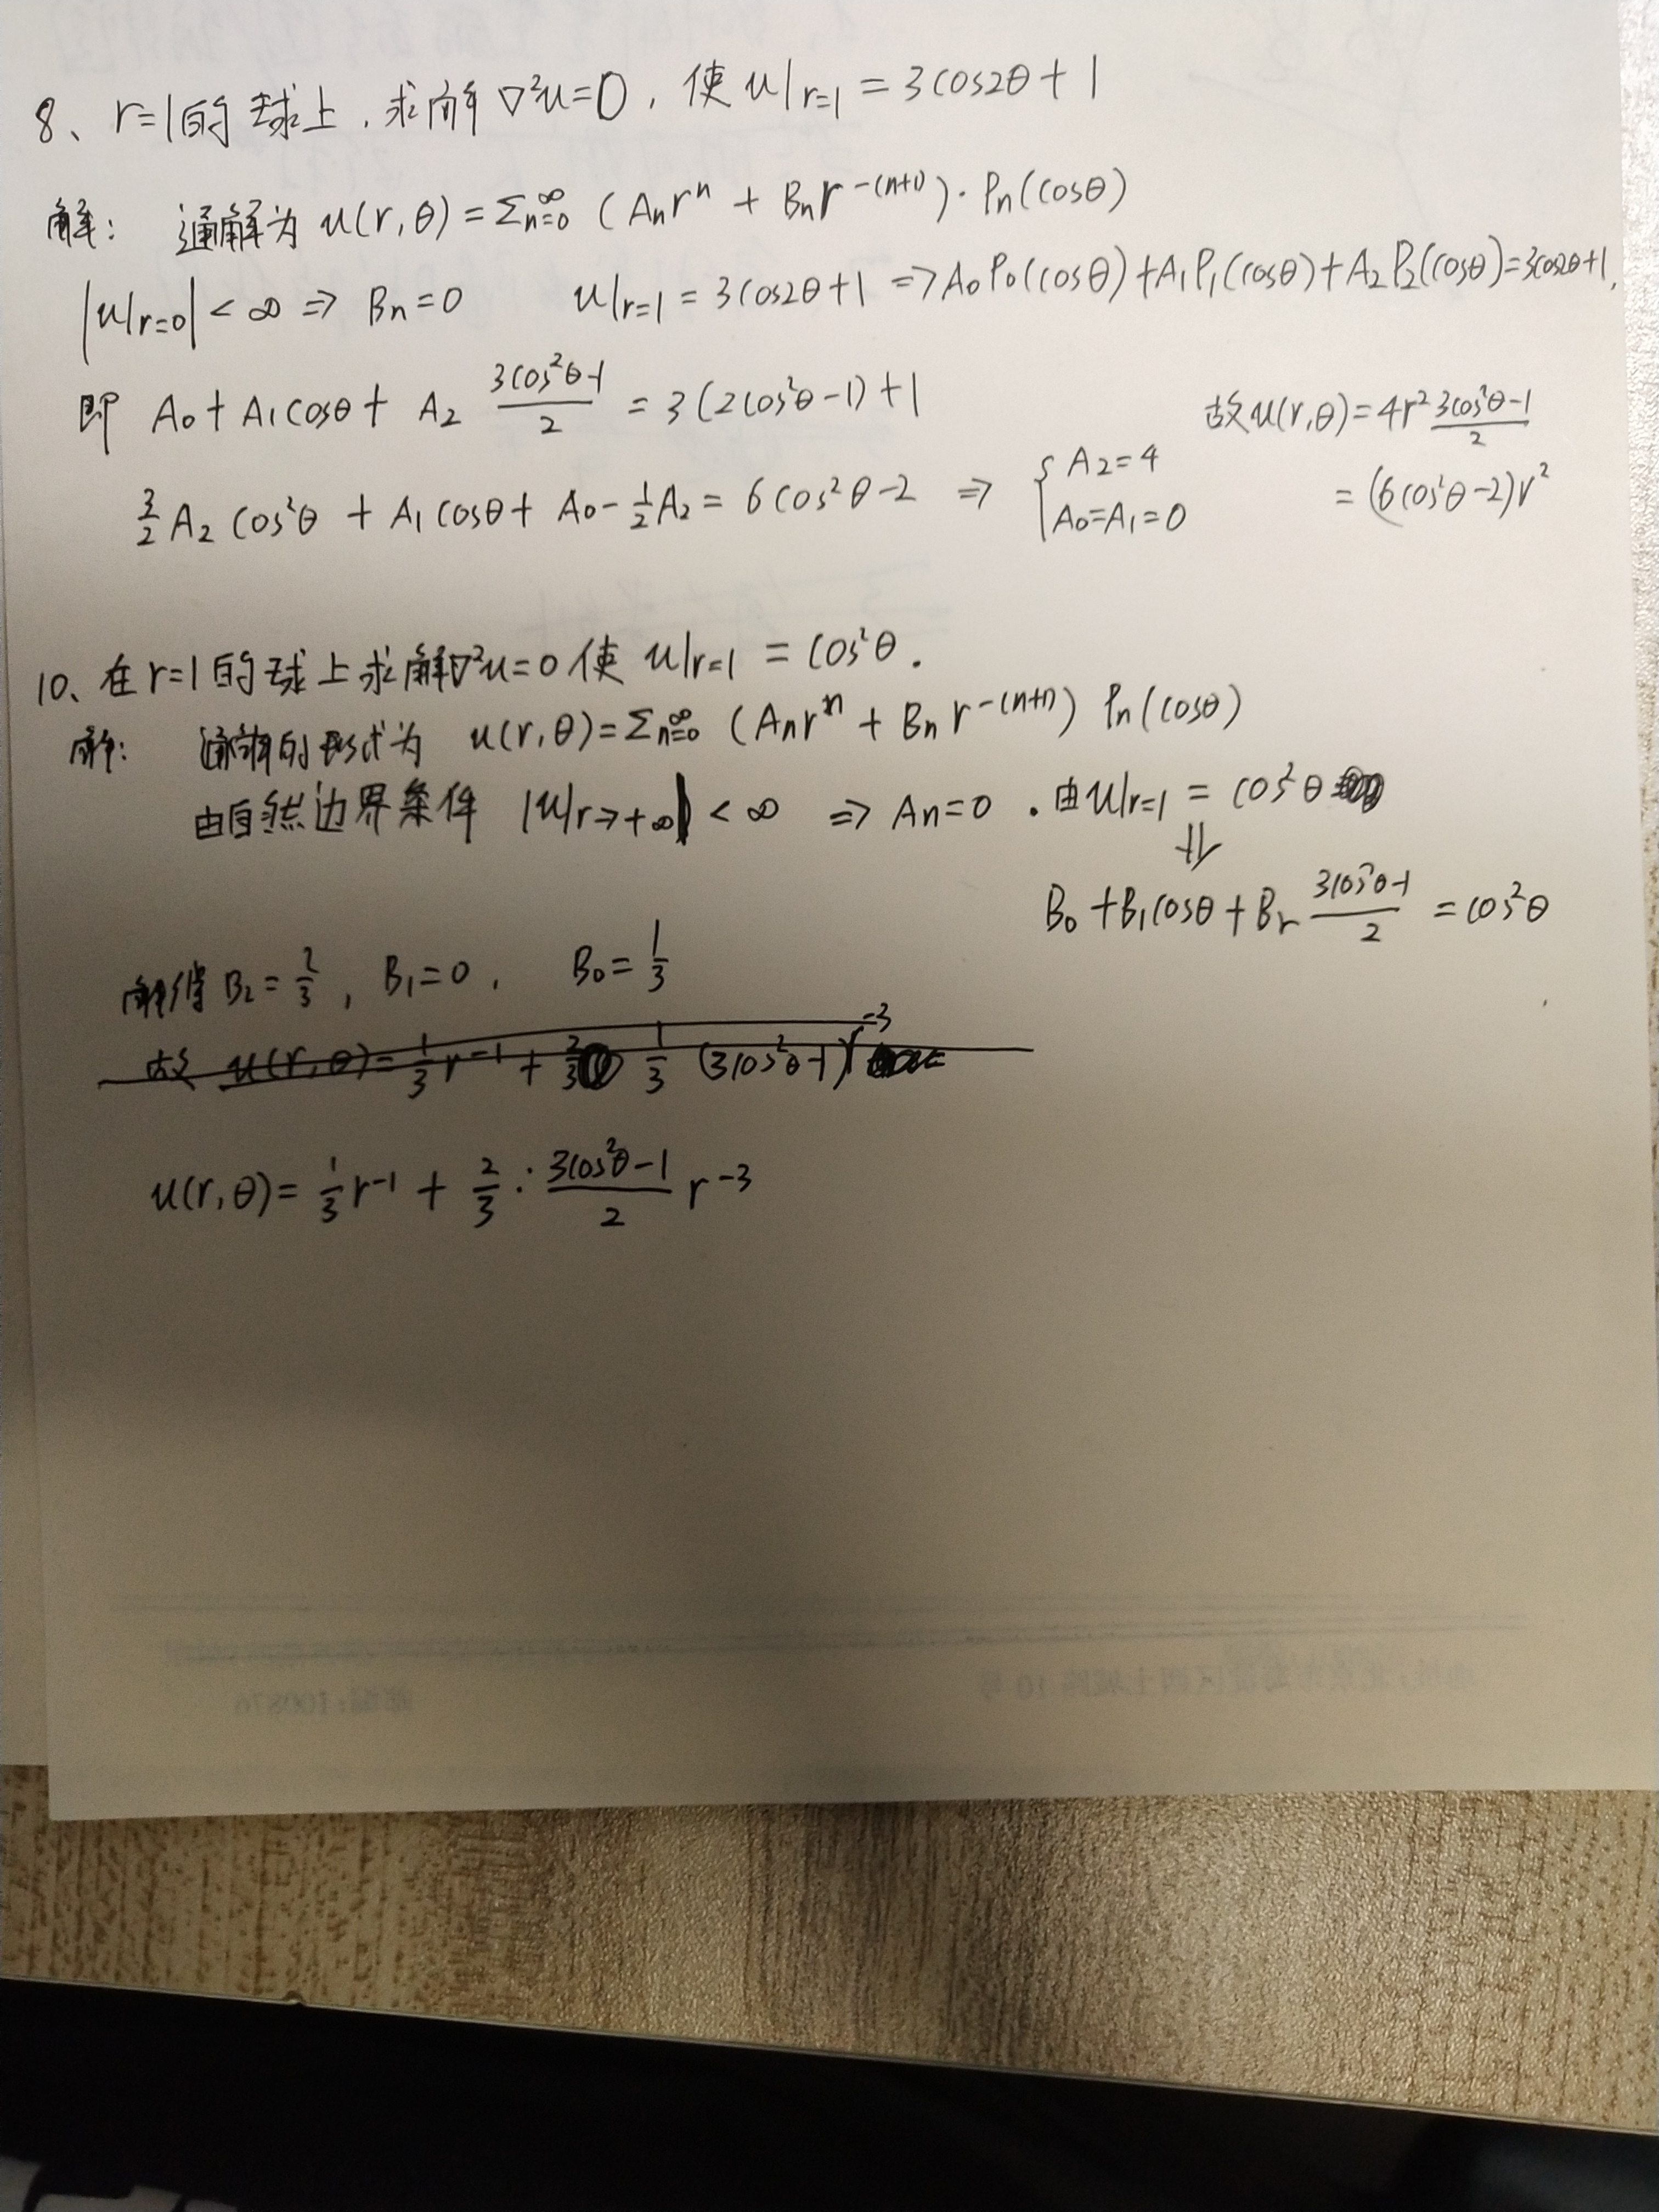 8、r=1的球上，求解∇²u=0，使 u|r=1 = 3cos2θ+1
解： 通解为 u(r,θ)=Σn=0^∞ (Anr^n + Bnr^-(n+1))·Pn(cosθ)
|u|r=0|<∞ ⇒ Bn=0 u|r=1 = 3cos2θ+1 ⇒ A0P0(cosθ)+A1P1(cosθ)+A2P2(cosθ)=3cos2θ+1,
即 A0+A1cosθ+ A2 (3cos²θ-1)/2 = 3(2cos²θ-1)+1
3/2 A2 cos²θ + A1cosθ+ A0-1/2A2 = 6cos²θ-2 ⇒ { A2=4
A0=A1=0
故u(r,θ)=4r² (3cos²θ-1)/2
=(6cos²θ-2)r²
10、在r=1的球上求解∇²u=0使 u|r=1 = cos²θ.
解: 通解的形式为 u(r,θ)=Σn=0^∞ (Anr^n + Bn r^-(n+1)) Pn(cosθ)
由自然边界条件 |u|r→+∞|<∞ ⇒ An=0 . 由u|r=1 = cos²θ
⇓
B0+B1cosθ+Br (3cos²θ-1)/2 = cos²θ
解得B2=2/3, B1=0, B0=1/3
故 u(r,θ)=1/3 r^-1 + 2/3 1/3 (3cos²θ-1)r^-3
u(r,θ)= 1/3 r^-1 + 2/3 · (3cos²θ-1)/2 r^-3